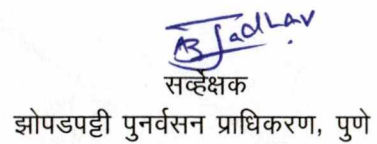 AB Jadhav
सर्व्हेक्षक
झोपडपट्टी पुनर्वसन प्राधिकरण, पुणे